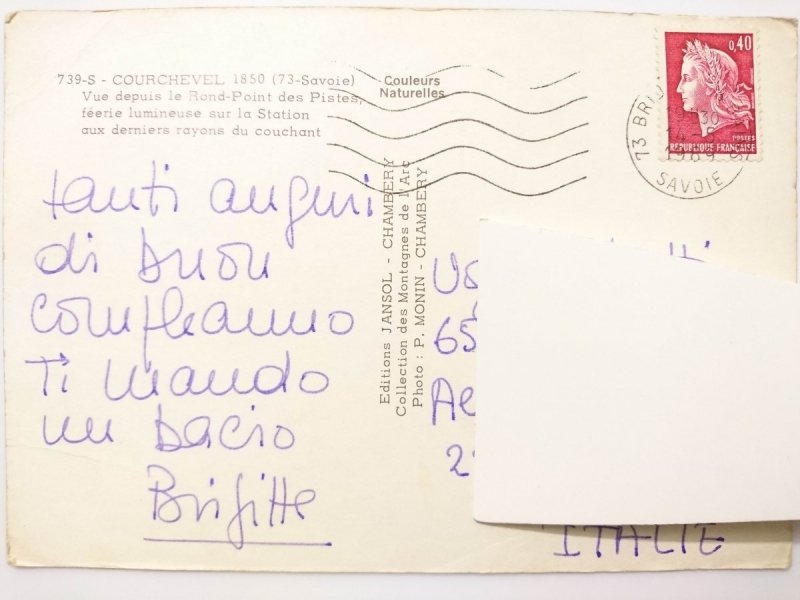 739-S - COURCHEVEL 1850 (73-Savoie)
Vue depuis le Rond-Point des Pistes,
féerie lumineuse sur la Station
aux derniers rayons du couchant
Couleurs
Naturelles
0,40
POSTES
REPUBLIQUE FRANÇAISE
73
30
14
1969
SAVOIE
tanti auguri
di buon
compleanno
Ti mando
un bacio
Brigitte
Editions JANSOL - CHAMBERY
Collection des Montagnes de l'Arc
Photo : P. MONIN - CHAMBERY
65
ITALIE